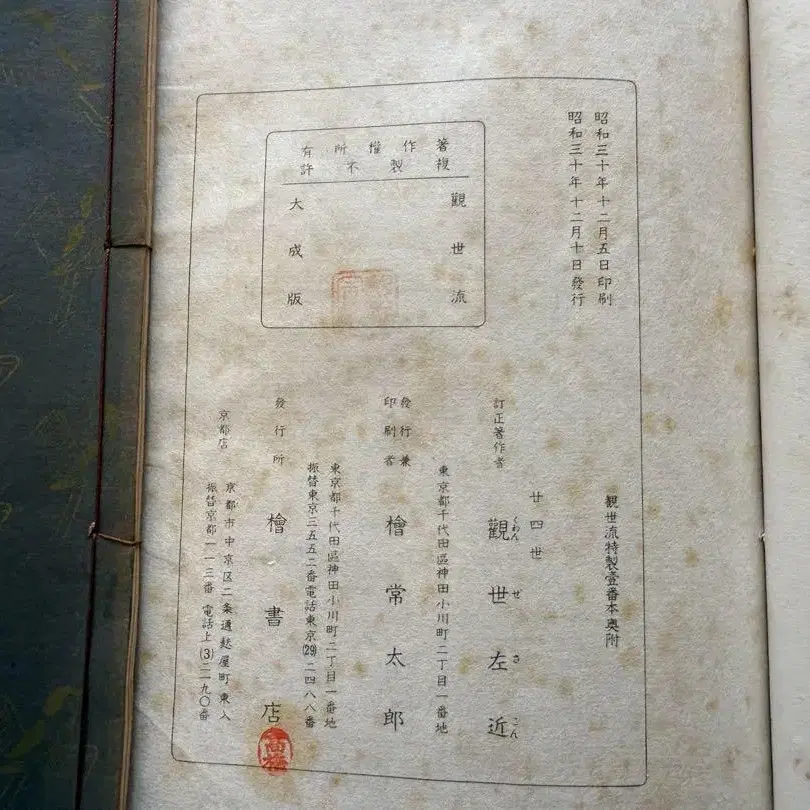 昭和三十年十二月五日印刷
昭和三十年十二月十日發行
觀世流特製壹番本奥附
著作權所有
複製不許
觀世流
大成版
訂正著作者
廿四世
觀世左近
くわんぜさこん
東京都千代田區神田小川町二丁目一番地
發行兼
印刷者
檜常太郎
東京都千代田區神田小川町二丁目一番地
振替東京三五五二番電話東京(29)二四八八番
發行所
檜書店
京都店
京都市中京区二条通麩屋町東入
振替京都一一三番 電話上(3)二一九〇番
高橋